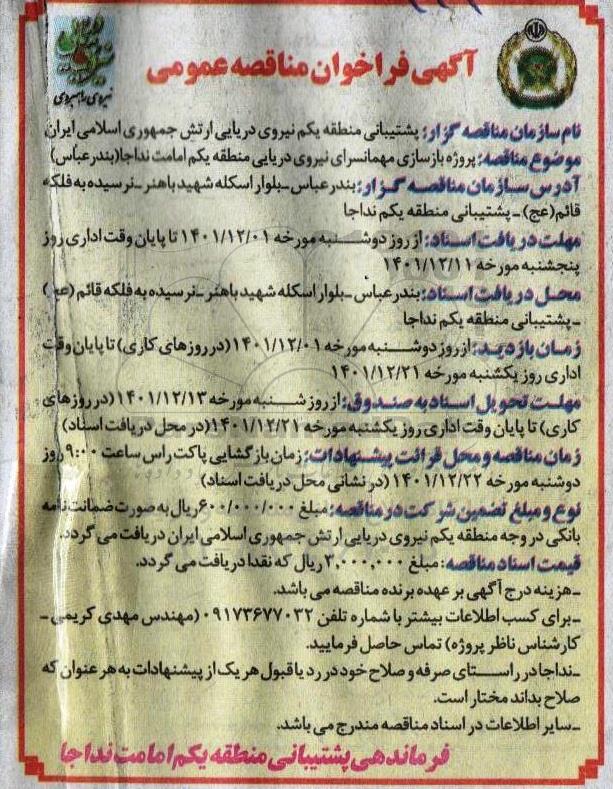 نیروی راهبردی
آگهی فراخوان مناقصه عمومی
نام سازمان مناقصه گزار: پشتیبانی منطقه یکم نیروی دریایی ارتش جمهوری اسلامی ایران
موضوع مناقصه: پروژه بازسازی مهمانسرای نیروی دریایی منطقه یکم امامت نداجا(بندرعباس)
آدرس سازمان مناقصه گزار: بندرعباس ـ بلوار اسکله شهید باهنر ـ نرسیده به فلکه
قائم(عج) ـ پشتیبانی منطقه یکم نداجا
مهلت دریافت اسناد: از روز دوشنبه مورخه ۱۴۰۱/۱۲/۰۱ تا پایان وقت اداری روز
پنجشنبه مورخه ۱۴۰۱/۱۲/۱۱
محل دریافت اسناد: بندرعباس ـ بلوار اسکله شهید باهنر ـ نرسیده به فلکه قائم (عج)
ـ پشتیبانی منطقه یکم نداجا
زمان بازدید: از روز دوشنبه مورخه ۱۴۰۱/۱۲/۰۱(در روزهای کاری) تا پایان وقت
اداری روز یکشنبه مورخه ۱۴۰۱/۱۲/۲۱
مهلت تحویل اسناد به صندوق: از روز شنبه مورخه ۱۴۰۱/۱۲/۱۳(در روزهای
کاری) تا پایان وقت اداری روز یکشنبه مورخه ۱۴۰۱/۱۲/۲۱(در محل دریافت اسناد)
زمان مناقصه و محل قرائت پیشنهادات: زمان بازگشایی پاکت راس ساعت ۹:۰۰ روز
دوشنبه مورخه ۱۴۰۱/۱۲/۲۲ (در نشانی محل دریافت اسناد)
نوع و مبلغ تضمین شرکت در مناقصه: مبلغ ۶۰۰/۰۰۰/۰۰۰ریال به صورت ضمانت نامه
بانکی در وجه منطقه یکم نیروی دریایی ارتش جمهوری اسلامی ایران دریافت می گردد.
قیمت اسناد مناقصه: مبلغ ۲,۰۰۰,۰۰۰ ریال که نقدا دریافت می گردد.
ـ هزینه درج آگهی بر عهده برنده مناقصه می باشد.
ـ برای کسب اطلاعات بیشتر با شماره تلفن ۰۹۱۷۳۶۷۷۰۳۲ (مهندس مهدی کریمی ـ
کارشناس ناظر پروژه) تماس حاصل فرمایید.
ـ نداجا در راستای صرفه و صلاح خود در رد یا قبول هر یک از پیشنهادات به هر عنوان که
صلاح بداند مختار است.
ـ سایر اطلاعات در اسناد مناقصه مندرج می باشد.
فرماندهی پشتیبانی منطقه یکم امامت نداجا